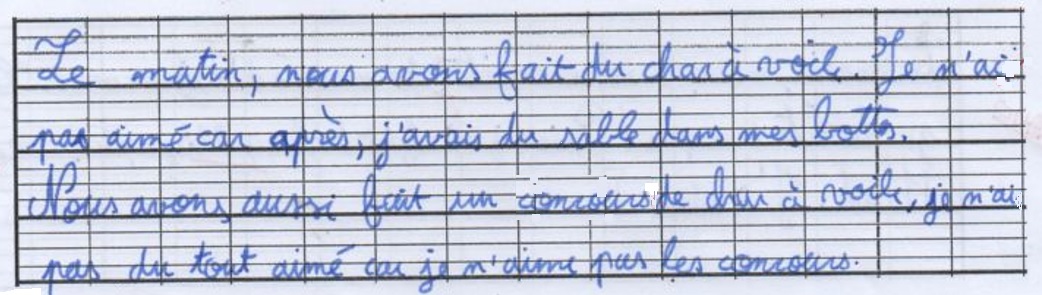 Le matin, nous avons fait du char à voile. Je n'ai
pas aimé car après, j'avais du sable dans mes bottes.
Nous avons aussi fait un concours de char à voile, je n'ai
pas du tout aimé car je n'aime pas les concours.